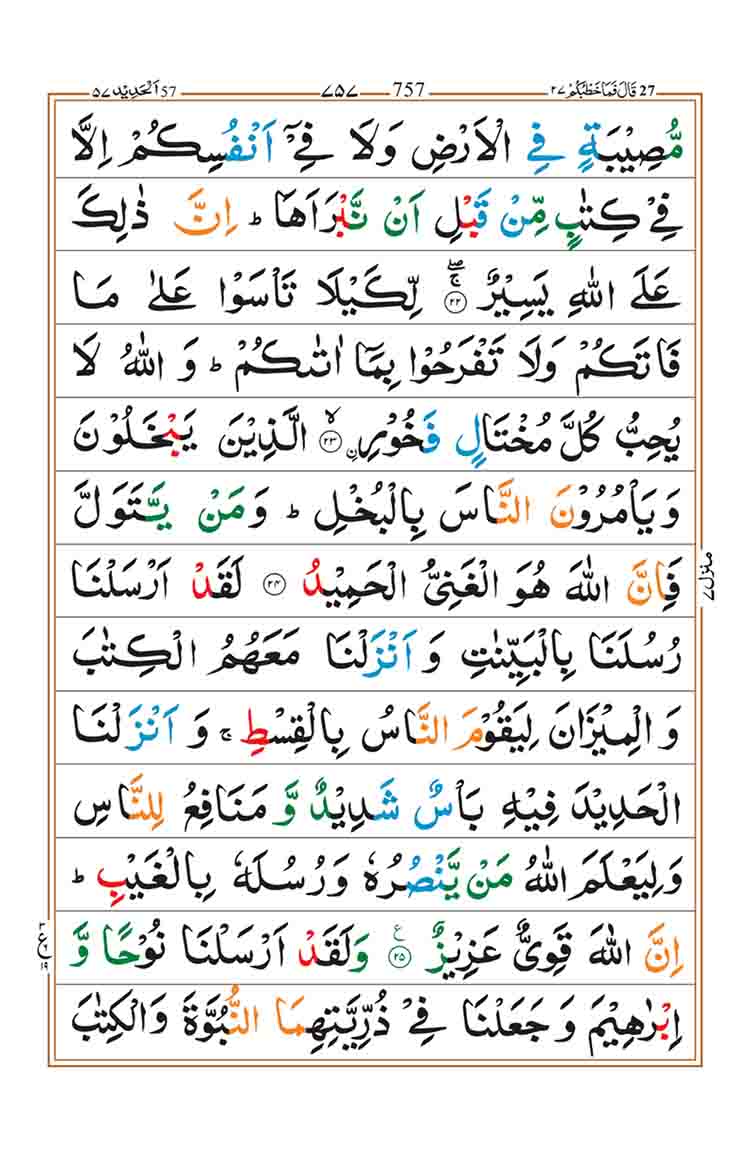 27 قَالَ فَمَا خَطْبُكُمْ ٢٧ 757 ٧٥٧ 57 اَلْحَدِيْد ٥٧
مُّصِيْبَةٍ فِي الْاَرْضِ وَلَا فِيْٓ اَنْفُسِكُمْ اِلَّا
فِيْ كِتٰبٍ مِّنْ قَبْلِ اَنْ نَّبْرَاَهَا ؕ اِنَّ ذٰلِكَ
عَلَى اللّٰهِ يَسِيْرٌ ۚۖ ﴿٢٢﴾ لِّكَيْلَا تَاْسَوْا عَلٰى مَا
فَاتَكُمْ وَلَا تَفْرَحُوْا بِمَاۤ اٰتٰىكُمْ ؕ وَ اللّٰهُ لَا
يُحِبُّ كُلَّ مُخْتَالٍ فَخُوْرِ ۙ ﴿٢٣﴾ ِن الَّذِيْنَ يَبْخَلُوْنَ
وَ يَاْمُرُوْنَ النَّاسَ بِالْبُخْلِ ؕ وَ مَنْ يَّتَوَلَّ
فَاِنَّ اللّٰهَ هُوَ الْغَنِيُّ الْحَمِيْدُ ﴿٢٤﴾ لَقَدْ اَرْسَلْنَا
رُسُلَنَا بِالْبَيِّنٰتِ وَ اَنْزَلْنَا مَعَهُمُ الْكِتٰبَ
وَ الْمِيْزَانَ لِيَقُوْمَ النَّاسُ بِالْقِسْطِ ۚ وَ اَنْزَلْنَا
الْحَدِيْدَ فِيْهِ بَاْسٌ شَدِيْدٌ وَّ مَنَافِعُ لِلنَّاسِ
منزل ٧
وَ لِيَعْلَمَ اللّٰهُ مَنْ يَّنْصُرُهٗ وَ رُسُلَهٗ بِالْغَيْبِ ؕ
اِنَّ اللّٰهَ قَوِيٌّ عَزِيْزٌ ﴿٢٥﴾ ع وَ لَقَدْ اَرْسَلْنَا نُوْحًا وَّ
ع
اِبْرٰهِيْمَ وَ جَعَلْنَا فِيْ ذُرِّيَّتِهِمَا النُّبُوَّةَ وَ الْكِتٰبَ